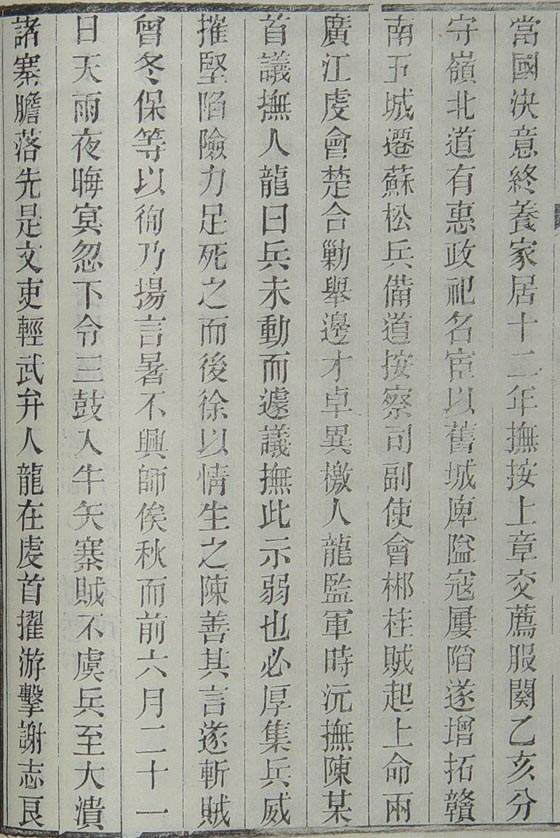 當國決意終養家居十二年撫按上章交薦服闋乙亥分
守嶺北道有惠政祀名宦以舊城庳隘寇屢陷遂增拓贛
南五城遷蘇松兵備道按察司副使會郴桂賊起上命兩
廣江虔會楚合勦舉邊才卓異檄人龍監軍時沅撫陳某
首議撫人龍曰兵未動而遽議撫此示弱也必厚集兵威
摧堅陷險力足死之而後徐以情生之陳善其言遂斬賊
曾冬保等以徇乃揚言暑不興師俟秋而前六月二十一
日天雨夜晦冥忽下令三鼓入牛矢寨賊不虞兵至大潰
諸寨膽落先是文吏輕武弁人龍在虔首擢游擊謝志良